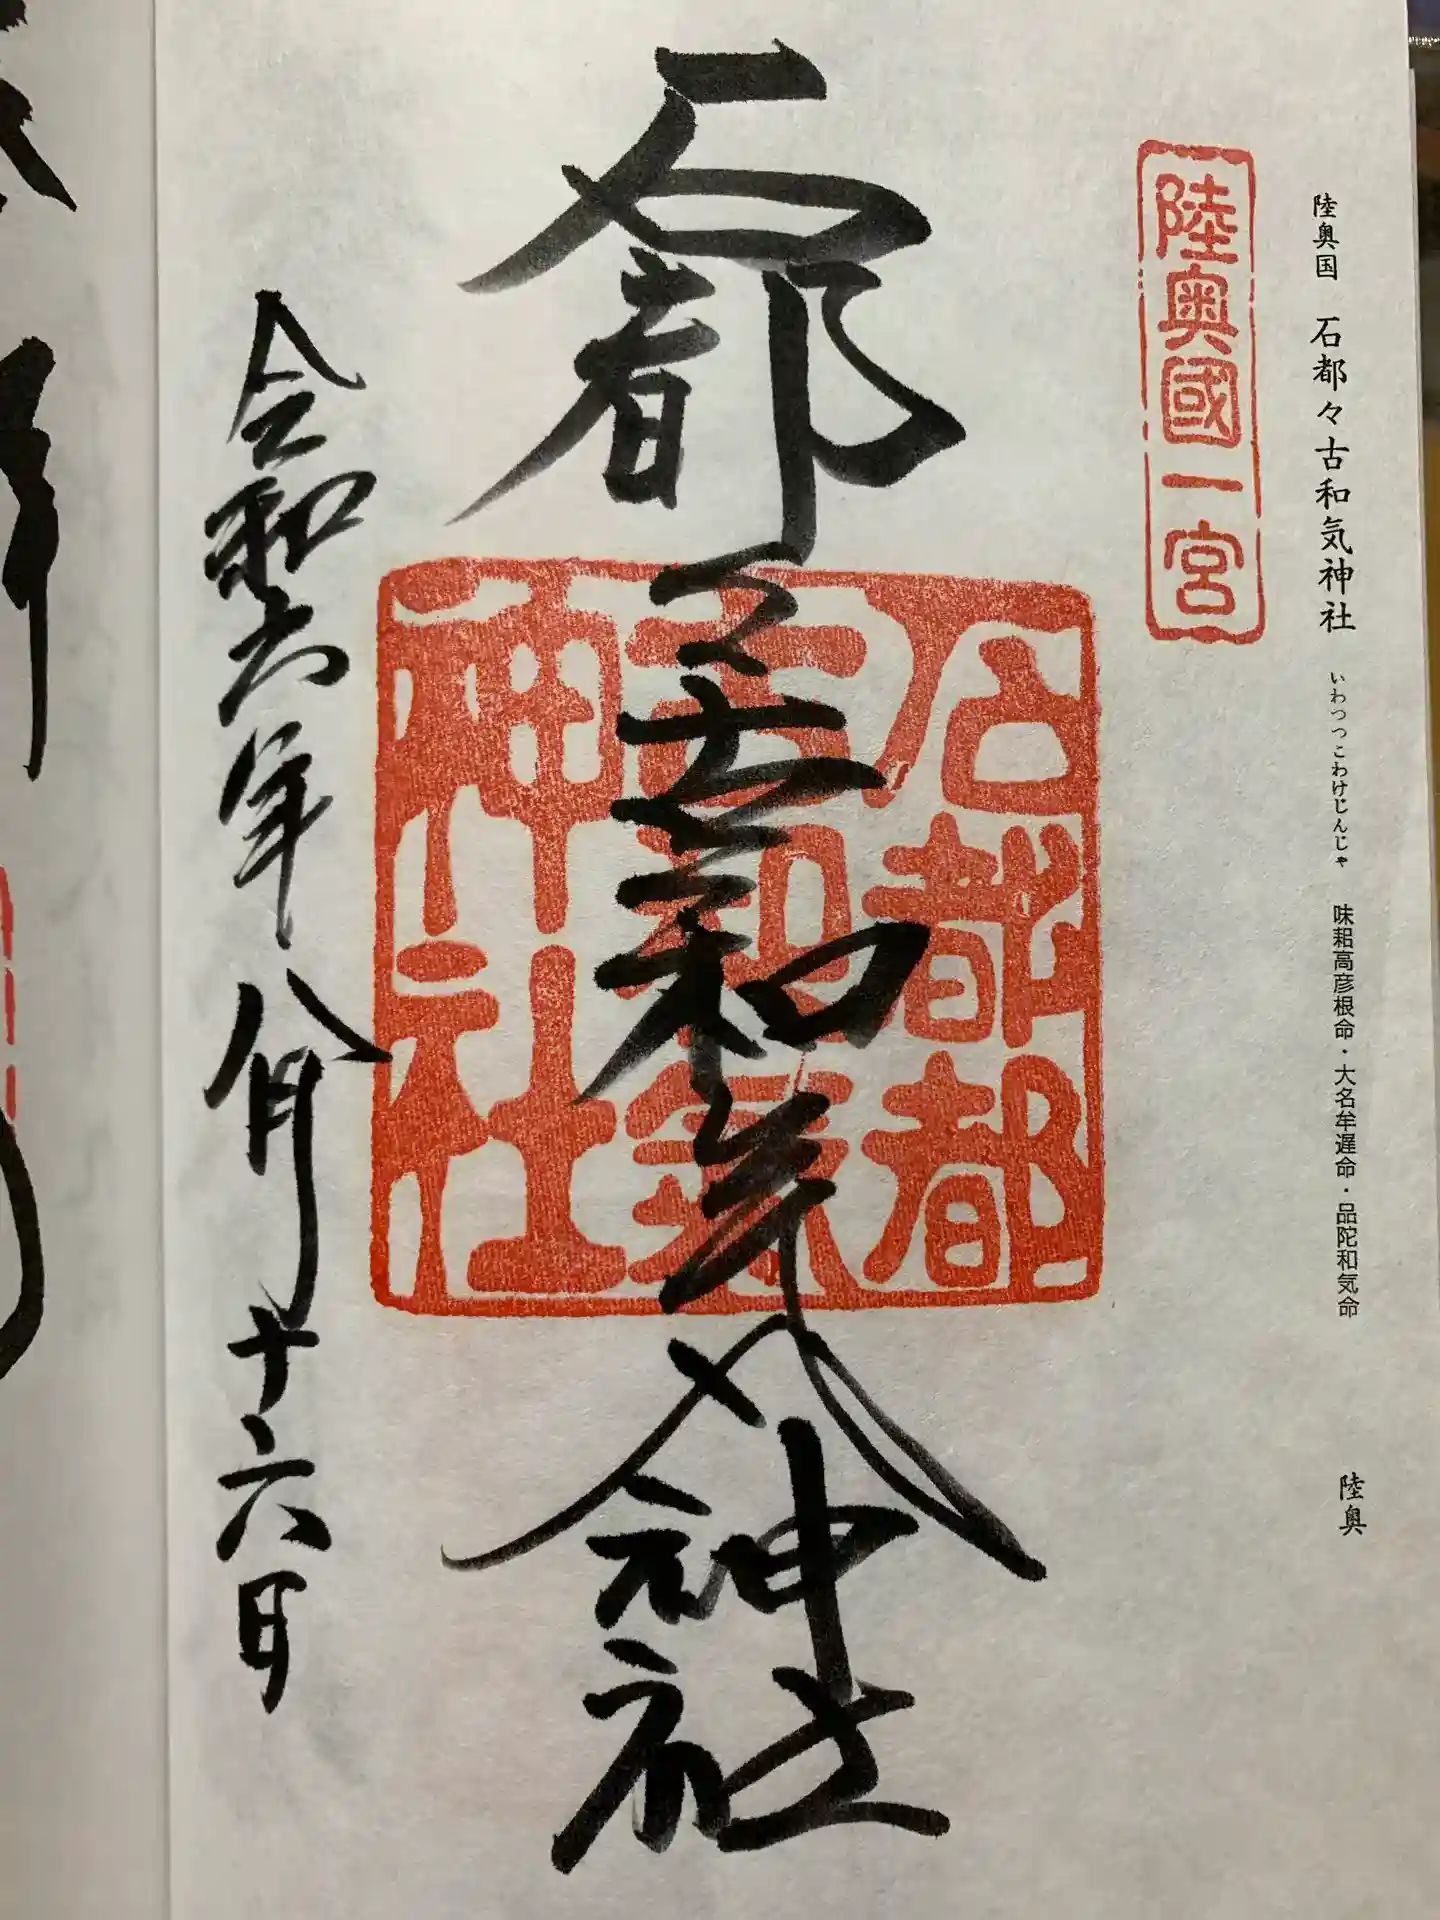 陸奥国 石都々古和気神社 いわつつこわけじんじゃ 味耜高彦根命・大名牟遅命・品陀和気命 陸奥
陸奥國一宮
石都々古和気神社
石都都古和氣神社
令和六年八月十六日